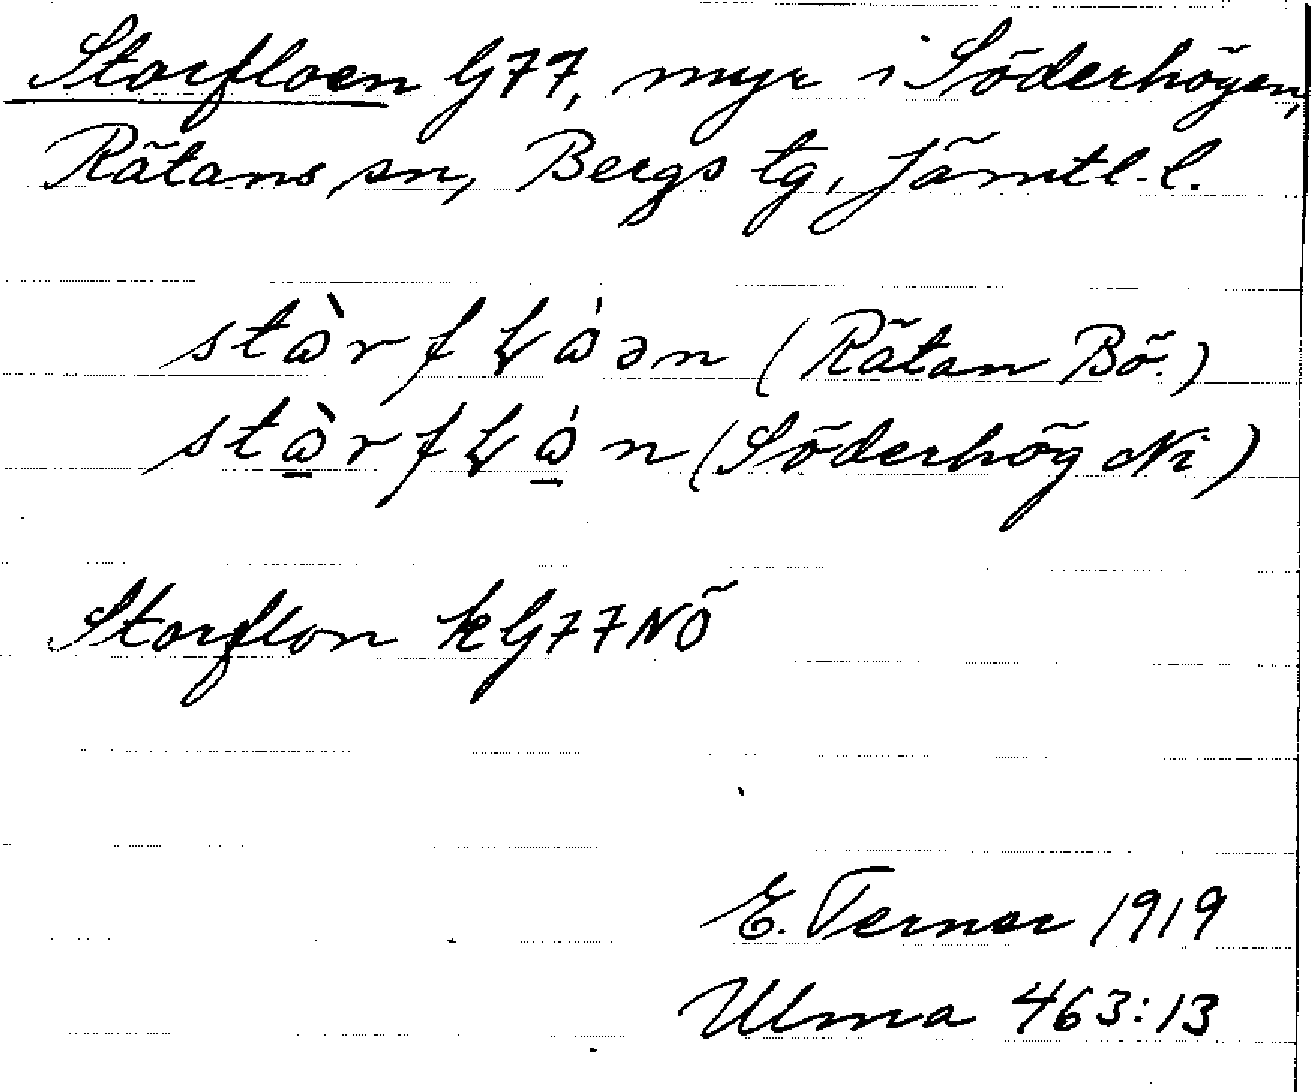 Storfloen G77, myr i Söderhögen,
Rätans sn, Bergs tg, Jämtl. l.
stὼrfꞭώən (Rätan Bö.)
stὼ̱rfꞭώ̱n (Söderhög Ni)
Storflon kG77NÖ
E. Terner 1919
Ulma 463:13